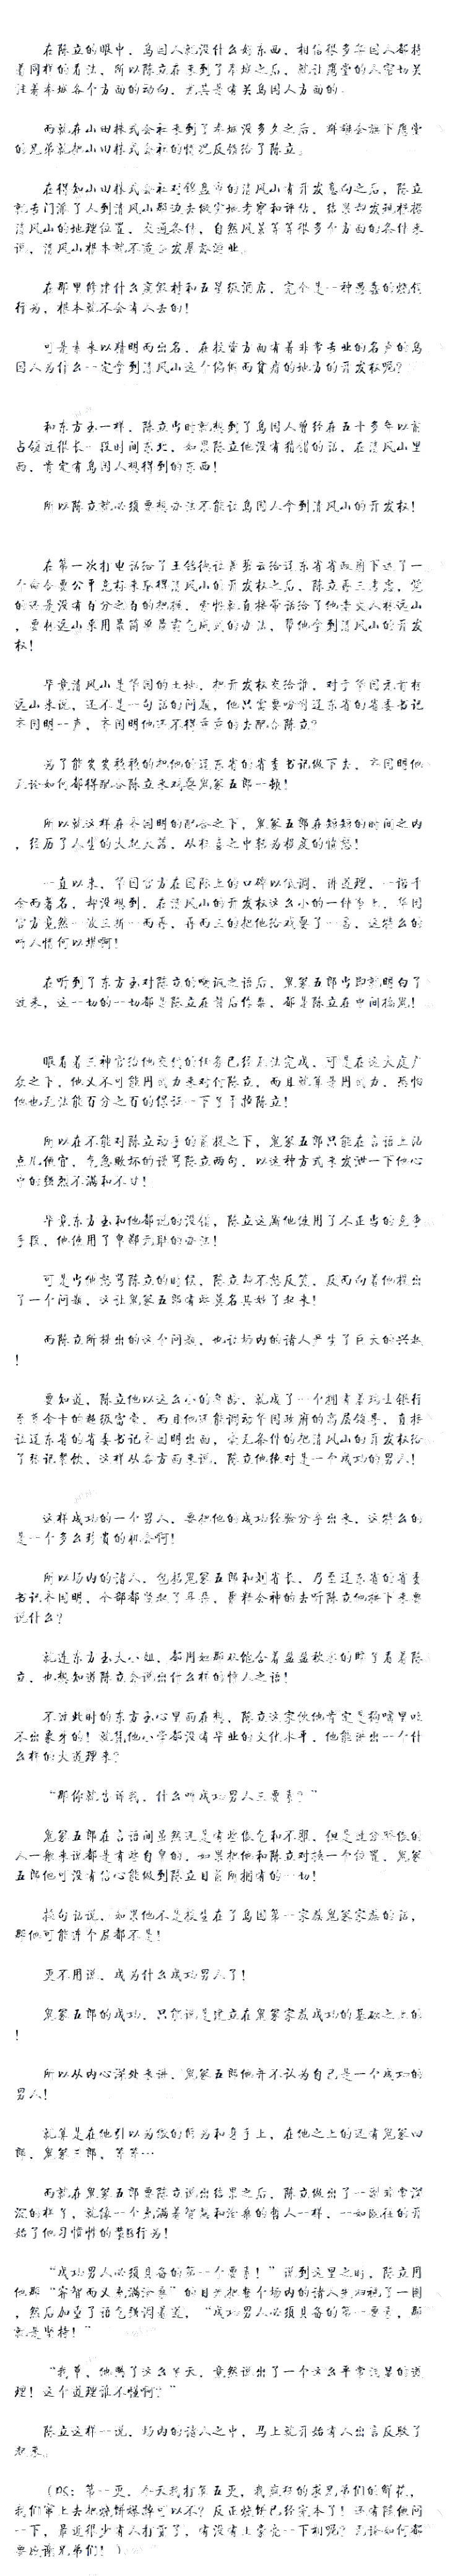 在陈立的眼中，岛国人就没什么好东西，相信很多华国人都持
着同样的看法，所以陈立在来到了本城之后，就让鹰堂的人密切关
注着本城各个方面的动向，尤其是有关岛国人方面的。
而就在山田株式会社来到了本城没多久之后，群雄会旗下鹰堂
的兄弟就把山田株式会社的情况反馈给了陈立。
在得知山田株式会社对银盘市的清风山有开发意向之后，陈立
就专门派了人到清风山那边去做实地考察和评估，结果却发现根据
清风山的地理位置，交通条件，自然风景等等很多个方面的条件来
说，清风山根本就不适合发展旅游业。
在那里修建什么度假村和五星级酒店，完全是一种愚蠢的烧钱
行为，根本就不会有人去的！
可是素来以精明而出名，在投资方面有着非常专业的名声的岛
国人为什么一定拿到清风山这个偏僻而贫瘠的地方的开发权呢？
和东方玉一样，陈立当时就想到了岛国人曾经在五十多年以前
占领过很长一段时间东北，如果陈立他没有猜错的话，在清风山里
面，肯定有岛国人想得到的东西！
所以陈立就必须要想办法不能让岛国人拿到清风山的开发权！
在第一次打电话给了王铭德让
个命令要公平竞标来取得清风山的开发权之后，陈立再三考虑，觉
的还是没有百分之百的把握，索性就直接带话给了他老丈人林远山
，要林远山采用最简单最霸气成式的办法，帮他拿到清风山的开发
权！
毕竟清风山是华国的土地，把开发权交给谁，对于华国元首林
远山来说，还不是一句话的问题，他只需要吩咐辽东省的省委书记
齐国明一声，齐国明他还不得乖乖的去配合陈立？
为了能安安稳稳的把他的辽东省的省委书记做下去，齐国明他
无论如何都得配合陈立来对耍鬼冢五郎一顿！
所以就这样在齐国明的配合之下，鬼冢五郎在短短的时间之内
，经历了人生的大起大落，从狂喜之中转为极度的愤怒！
一直以来，华国官方在国际上的口碑以低调，讲道理，一诺千
金而著名，却没想到，在清风山的开发权这么小的一件事上，华国
官方竟然一波三折一而再，再而三的把他给戏耍了一番，这特么的
听人情何以堪啊！
在听到了东方玉对陈立的嘲讽之语后，鬼冢五郎当即就明白了
过来，这一切的一切都是陈立在背后作祟，都是陈立在中间搞鬼！
眼看着三神官给他交代的任务已经无法完成，可是在这大庭广
众之下，他又不可能用武力来对付陈立，而且就算是用武力，恐怕
他也无法能百分之百的保证一下子干掉陈立！
所以在不能对陈立动手的前提之下，鬼冢五郎只能在言语上沾
点儿便宜，气急败坏的谩骂陈立两句，以这种方式来发泄一下他心
中的强烈不满和不甘！
毕竟东方玉和他都说的没错，陈立这厮他使用了不正当的竞争
手段，他使用了卑鄙无耻的办法！
可是当他怒骂陈立的时候，陈立却不怒反笑，反而向着他提出
了一个问题，这让鬼冢五郎有些莫名其妙了起来！
而陈立所提出的这个问题，也让场内的诸人产生了巨大的兴趣
！
要知道，陈立他以这么小的年龄，就成了一个拥有着瑞士银行
至尊金卡的超级富豪，而且他还能调动华国政府的高层领导，直接
让辽东省的省委书记齐国明出面，毫无条件的把清风山的开发权给
了张记餐饮，这样从各方面来说，陈立他绝对是一个成功的男人！
这样成功的一个男人，要把他的成功经验分享出来，这特么的
是一个多么珍贵的机会啊！
所以场内的诸人，包括鬼冢五郎和刘省长，乃至辽东省的省委
书记齐国明，全部都竖起了耳朵，聚精会神的去听陈立他接下来要
说什么？
就连东方玉大小姐，都用她那双能含着盈盈秋水的眸子看着陈
立，也想知道陈立会说出什么样的惊人之语！
不过此时的东方玉心里面在想，陈立这家伙他肯定是狗嘴里吐
不出象牙的！就凭他小学都没有毕业的文化水平，他能讲出一个什
么样的大道理来？
“那你就告诉我，什么叫成功男人三要素？”
鬼冢五郎在言语间虽然还是有些傲气和不服，但是过分骄傲的
人一般来说都是有些自卑的，如果把他和陈立对换一个位置，鬼冢
五郎他可没有信心能做到陈立目前所拥有的一切！
换句话说，如果他不是投生在了岛国第一家族鬼冢家族的话，
那他可能连个屁都不是！
更不用说，成为什么成功男人了！
鬼冢五郎的成功，只能说是建立在鬼冢家族成功的基础之上的
！
所以从内心深处来讲，鬼冢五郎他并不认为自己是一个成功的
男人！
就算是在他引以为傲的修为和身手上，在他之上的还有鬼冢四
郎，鬼冢三郎，等等…
而就在鬼冢五郎要陈立说出结果之后，陈立做出了一副非常深
沉的样子，就像一个充满着智慧和沧桑的哲人一样，一如既往的开
始了他习惯性的装B行为！
“成功男人必须具备的第一个要素！”说到这里之时，陈立用
他那“睿智而又充满沧桑”的目光把整个场内的诸人先扫视了一圈
，然后加重了语气强调着道，“成功男人必须具备的第一要素，那
就是坚持！”
“我草，他憋了这么半天，竟然说出了一个这么平常浅显的道
理！这个道理谁不懂啊？”
陈立这样一说，场内的诸人之中，马上就开始有人出言反驳了
起来。
（PS：第一更，今天我打算五更，我疯狂的求兄弟们的鲜花，
我们帮上去把烧饼爆掉可以不？反正烧饼已经完本了！还有陪他问
一下，最近很少有人打赏了，有没有土豪赏一下利呢？无论如何都
要感谢兄弟们！）